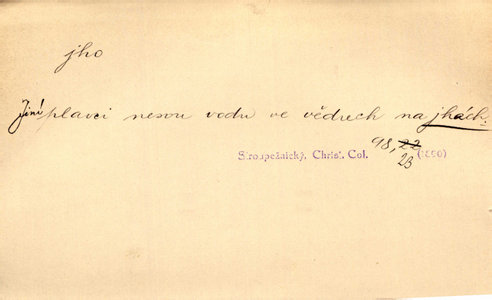 jho
Jiní plavci nesou vodu ve vědrech na jhách.
98, 22
Stroupežnický, Christ. Col. (1890)
23